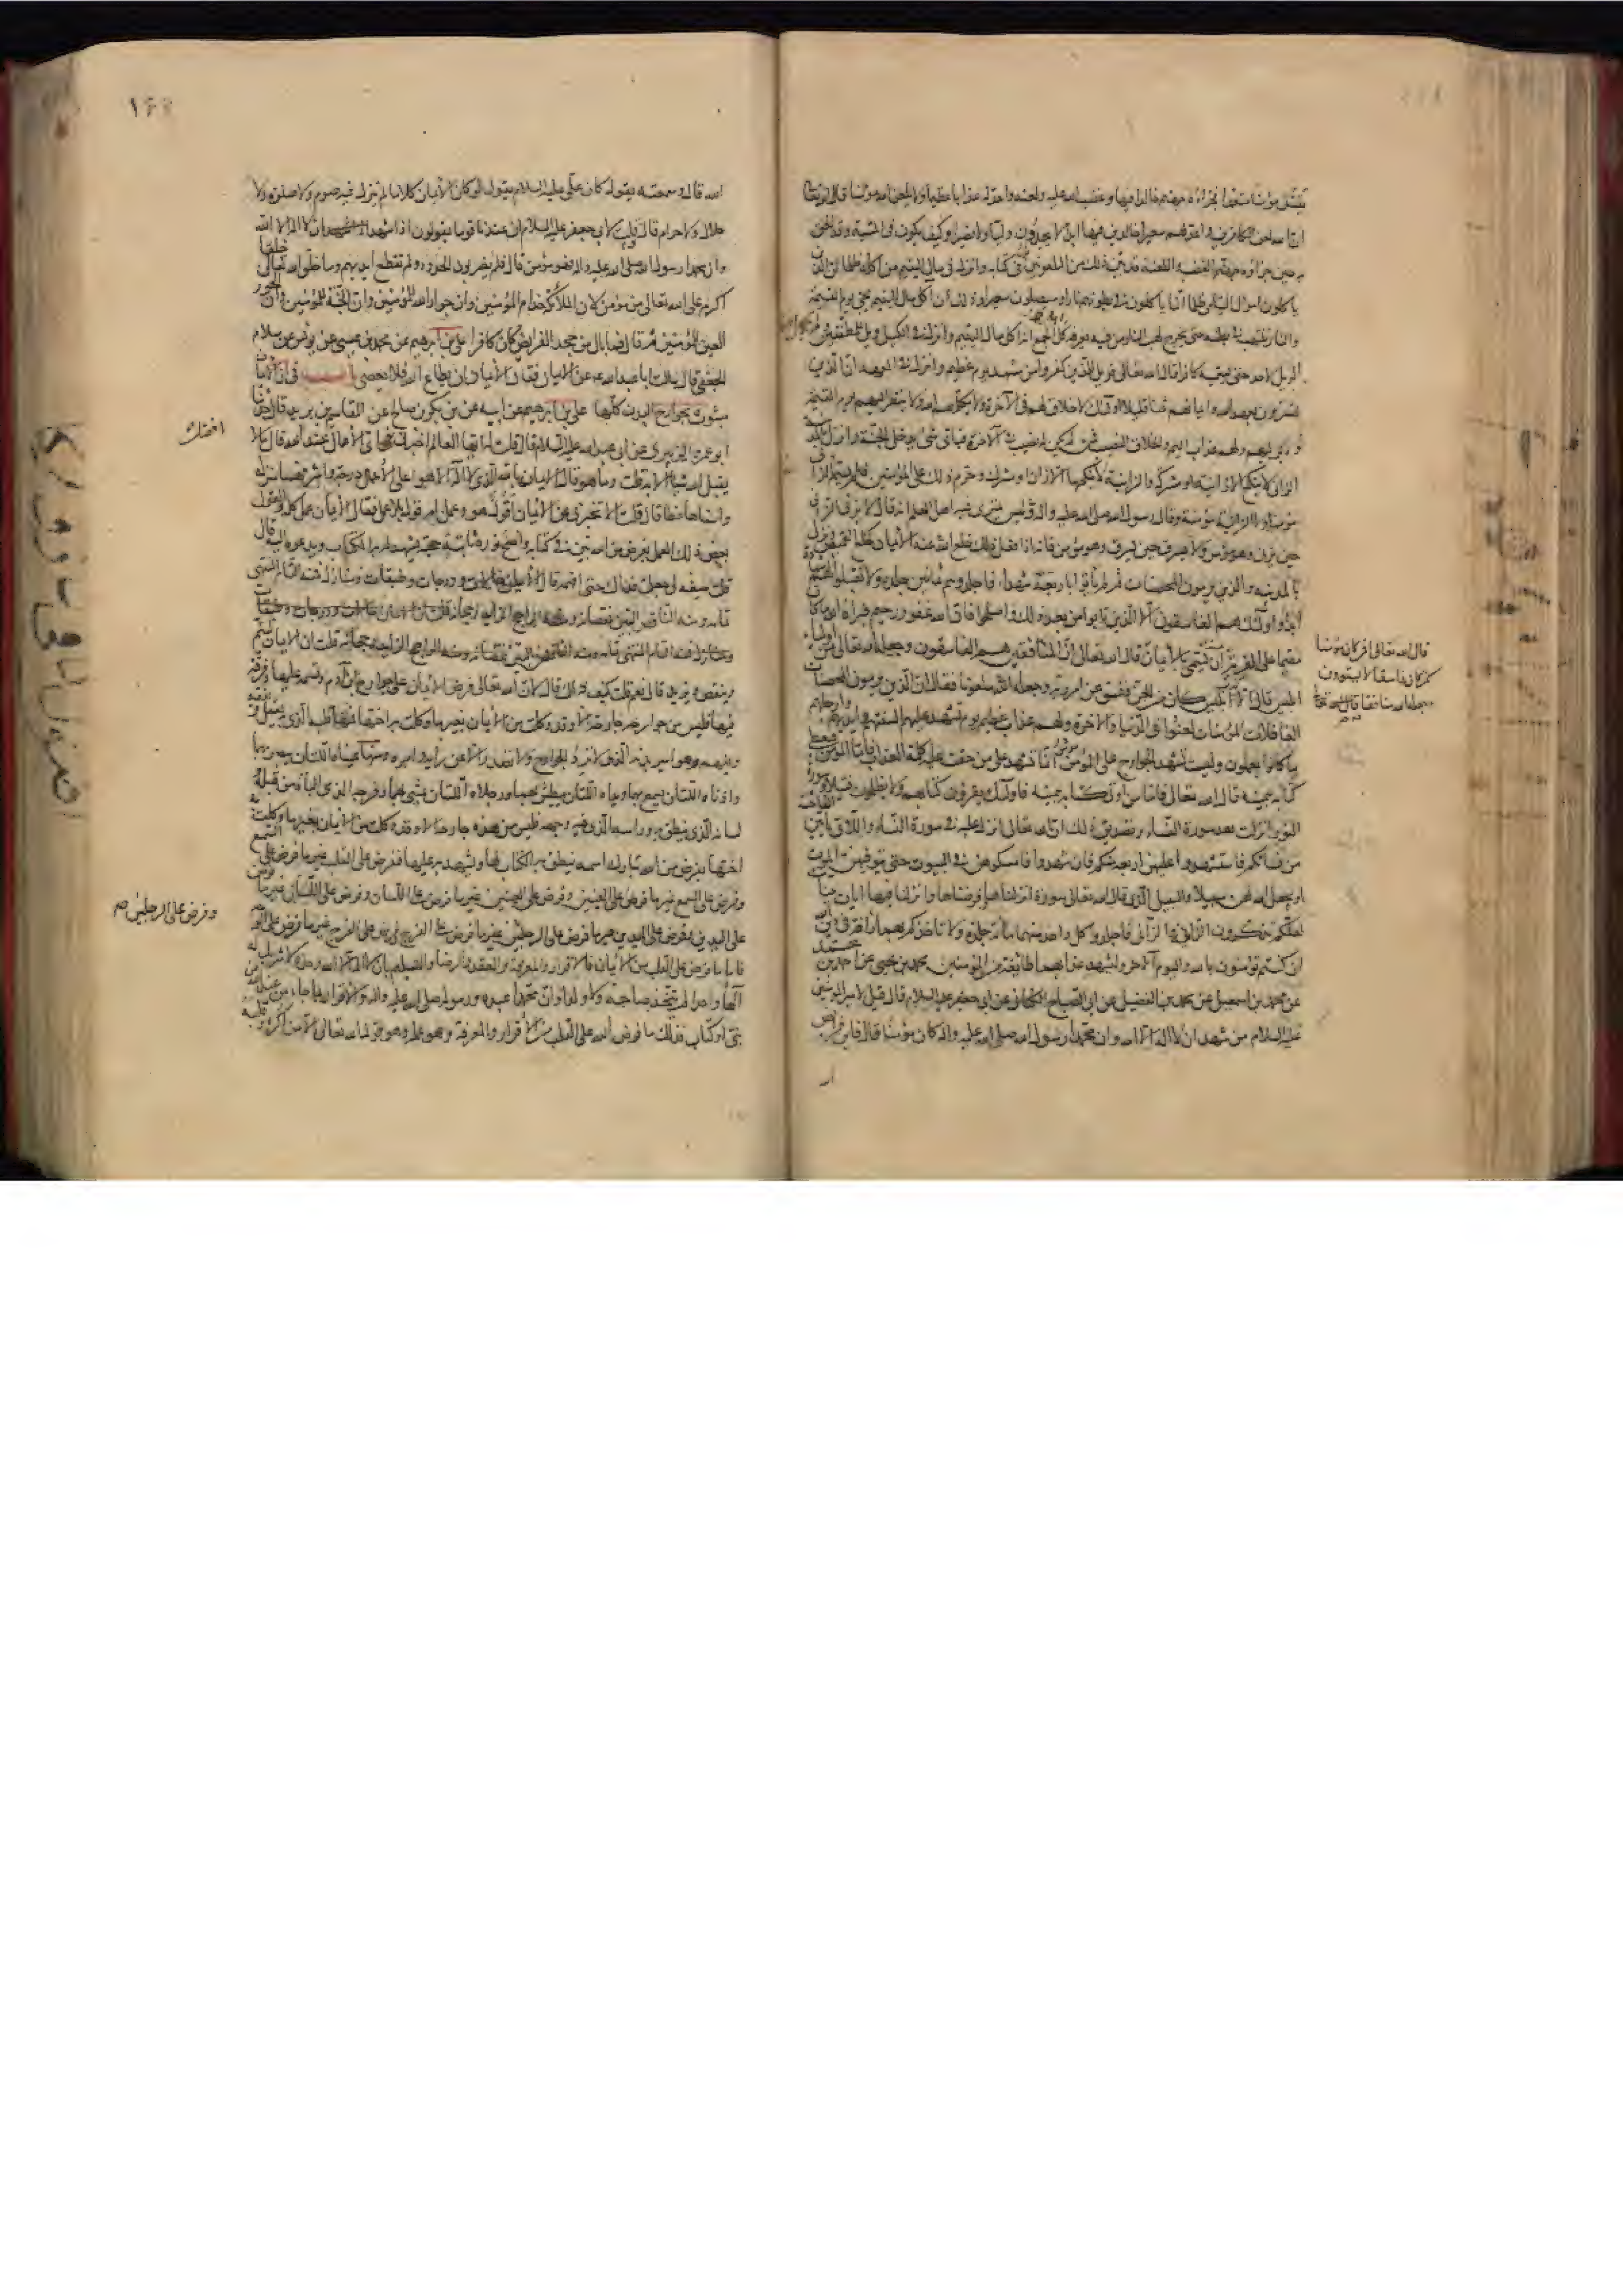 يقتل مؤمنا متعمدا فجزاؤه جهنم خالدا فيها وغضب الله عليه ولعنه واعد له عذابا عظيما ولا يلعن الله مؤمنا قال الله تعالى
ان الله لعن الكافرين واعد لهم سعيرا خالدين فيها ابدا لا يجدون وليا ولا نصيرا وكيف يكون في المشية وقد الحق
به حين جزاه جهنم الغضب واللعنة وقد بين ذلك من الملعونون في كتابه وانزل في مال اليتيم من اكله ظلما ان الذين
ياكلون اموال اليتامى ظلما انما ياكلون في بطونهم نارا وسيصلون سعيرا وذلك ان اكل مال اليتيم يجئ يوم القيمة
والنار تلتهب في بطنه حتى يخرج لهب النار من فيه يعرفه كل اهل الجمع انه اكل مال اليتيم وانزل في الكيل ويل للمطففين ولم يجعل
الويل لاحد حتى يسميه كافرا قال الله تعالى فويل للذين كفروا من مشهد يوم عظيم وانزل في العهد ان الذين
يشترون بعهد الله وايمانهم ثمنا قليلا اولئك لا خلاق لهم في الآخرة ولا يكلمهم الله ولا ينظر اليهم يوم القيمة
ولا يزكيهم ولهم عذاب اليم والخلاق النصيب فمن لم يكن له نصيب في الآخرة فباي شئ يدخل الجنة وانزل بالمدينة
الزاني لا ينكح الا زانية او مشركة والزانية لا ينكحها الا زان او مشرك وحرم ذلك على المؤمنين فلم يسم الله الزاني
مؤمنا ولا الزانية مؤمنة وقال رسول الله صلى الله عليه وآله ليس يمتري فيه اهل العلم انه قال لا يزني الزاني
حين يزني وهو مؤمن ولا يسرق السارق حين يسرق وهو مؤمن فانه اذا فعل ذلك خلع عنه الايمان كخلع القميص ونزل
بالمدينة والذين يرمون المحصنات ثم لم ياتوا باربعة شهداء فاجلدوهم ثمانين جلدة ولا تقبلوا لهم شهادة
ابدا واولئك هم الفاسقون الا الذين تابوا من بعد ذلك واصلحوا فان الله غفور رحيم فبرأه الله ما كان
مقيما على الفرية من ان يسمى بالايمان قال الله تعالى ان المنافقين هم الفاسقون وجعله الله تعالى من اولياء
ابليس قال الا ابليس كان من الجن ففسق عن امر ربه وجعله الله ملعونا فقال ان الذين يرمون المحصنات
الغافلات المؤمنات لعنوا في الدنيا والآخرة ولهم عذاب عظيم يوم تشهد عليهم السنتهم وايديهم وارجلهم
بما كانوا يعملون وليست تشهد الجوارح على المؤمن انما تشهد على من حقت عليه كلمة العذاب فاما المؤمن فيعطى
كتابه بيمينه قال الله تعالى فاما من اوتي كتابه بيمينه فاولئك يقرؤن كتابهم ولا يظلمون فتيلا وسورة
النور انزلت بعد سورة النساء وتصديق ذلك ان الله تعالى انزل عليه في سورة النساء واللاتي ياتين الفاحشة
من نسائكم فاستشهدوا عليهن اربعة منكم فان شهدوا فامسكوهن في البيوت حتى يتوفيهن الموت
او يجعل الله لهن سبيلا والسبيل الذي قال الله تعالى سورة انزلناها وفرضناها وانزلنا فيها آيات بينات
لعلكم تذكرون الزانية والزاني فاجلدوا كل واحد منهما مأة جلدة ولا تاخذكم بهما رأفة في دين الله
ان كنتم تؤمنون بالله واليوم الآخر وليشهد عذابهما طائفة من المؤمنين محمد بن يحيى عن احمد بن محمد
عن محمد بن اسمعيل عن محمد بن الفضيل عن ابي الصباح الكناني عن ابي جعفر عليه السلام قال قيل لامير المؤمنين
عليه السلام من شهد ان لا اله الا الله وان محمدا رسول الله صلى الله عليه وآله كان مؤمنا قال فاين فرائض
قال الله تعالى افمن كان مؤمنا
كمن كان فاسقا لا يستوون
وجعله الله منافقا قال الله تعالى
الله قال وسمعته يقول كان علي عليه السلام يقول لو كان الايمان كلاما لم ينزل فيه صوم ولا صلوة ولا
حلال ولا حرام قال وقلت لابي جعفر عليه السلام ان عندنا قوما يقولون اذا شهد ان لا اله الا الله
وان محمدا رسول الله صلى الله عليه وآله فهو مؤمن قال فلم يضربون الحدود ولم تقطع ايديهم وما خلق الله تعالى خلقا
اكرم على الله تعالى من مؤمن لان الملائكة خدام المؤمنين وان جوار الله للمؤمنين وان الجنة للمؤمنين وان الحور
العين للمؤمنين ثم قال فما بال من جحد الفرايض كان كافرا علي بن ابرهيم عن محمد بن عيسى عن يونس عن سلام
الجعفي قال سالت ابا عبد الله عن الايمان فقال الايمان ان يطاع الله فلا يعصى باب في ان الايمان
مبثوث بجوارح البدن كلها علي بن ابرهيم عن ابيه عن بكر بن صالح عن القاسم بن بريد قال حدثنا
ابو عمرو الزبيري عن ابي عبد الله عليه السلام قال قلت له ايها العالم اخبرني اي الاعمال عند الله قال ما لا
يقبل الله شيئا الا به قلت وما هو قال الايمان بالله الذي لا اله الا هو اعلى الاعمال درجة واشرفها منزلة
واسناها حظا قال قلت الا تخبرني عن الايمان اقول هو وعمل ام قول بلا عمل فقال الايمان عمل كله والقول
بعض ذلك العمل بفرض من الله بين في كتابه واضح نوره ثابتة حجته يشهد له به الكتاب ويدعوه اليه قال
قلت صفه لي جعلت فداك حتى افهمه قال الايمان حالات ودرجات وطبقات ومنازل فمنه التام المنتهى
تمامه ومنه الناقص البين نقصانه ومنه الراجح الزايد رجحانه قلت ان الايمان ليتم
وينقص ويزيد قال نعم قلت كيف ذلك قال لان الله تعالى فرض الايمان على جوارح ابن آدم وقسمه عليها وفرقه
فيها فليس من جوارحه جارحة الا وقد وكلت من الايمان بغير ما وكلت به اختها فمنها قلبه الذي به يعقل ويفقه
ويفهم وهو امير بدنه الذي لا ترد الجوارح ولا تصدر الا عن رأيه وامره ومنها عيناه اللتان يبصر بهما
واذناه اللتان يسمع بهما ويداه اللتان يبطش بهما ورجلاه اللتان يمشي بهما وفرجه الذي الباه من قبله
لسانه الذي ينطق به وراسه الذي فيه وجهه فليس من هذه جارحة الا وقد وكلت من الايمان بغير ما وكلت به
اختها بفرض من الله تبارك اسمه ينطق به الكتاب لها ويشهد به عليها ففرض على القلب غير ما فرض على السمع
وفرض على السمع غير ما فرض على العينين وفرض على العينين غير ما فرض على اللسان وفرض على اللسان غير ما فرض
على اليدين وفرض على اليدين غير ما فرض على الرجلين غير ما فرض على الفرج وفرض على الفرج غير ما فرض على الوجه
فاما ما فرض على القلب من الايمان فالاقرار والمعرفة والعقد والرضا والتسليم بان لا اله الا الله وحده لا شريك له
الها واحدا لم يتخذ صاحبة ولا ولدا وان محمدا عبده ورسوله صلى الله عليه وآله والاقرار بما جاء من عند الله من
نبي او كتاب فذلك ما فرض الله على القلب من الاقرار والمعرفة وهو عمله وهو قول الله تعالى الا من اكره وقلبه
افضل
وفرض على الرجلين صح